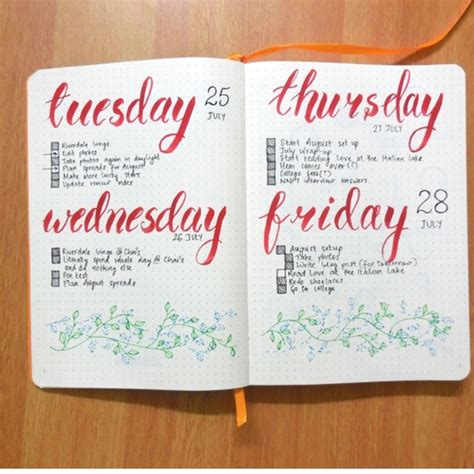 tuesday
25
JULY
Riverdale binge
Edit photos
Take photos again in daylight
Plan spreads for August
Make more lucky stars
Update review index
wednesday
26 JULY
Riverdale binge @ Chai's
Literally spend whole day @ Chai's
and do nothing else
Pen test
Plan August spreads
thursday
27 JULY
Start August set up
July wrap-up
Start reading Love at the Italian Lake
Hem comes over (?)
College fees (?)
interview answers
friday
28
JULY
August setup
Take photos
Write blog post (for tomorrow)
Read Love at the Italian Lake
Redo shoelaces
Go to college